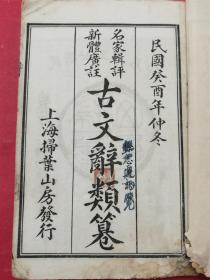 民國癸酉年仲冬
名家輯評
新體廣註
古文辭類纂
上海掃葉山房發行